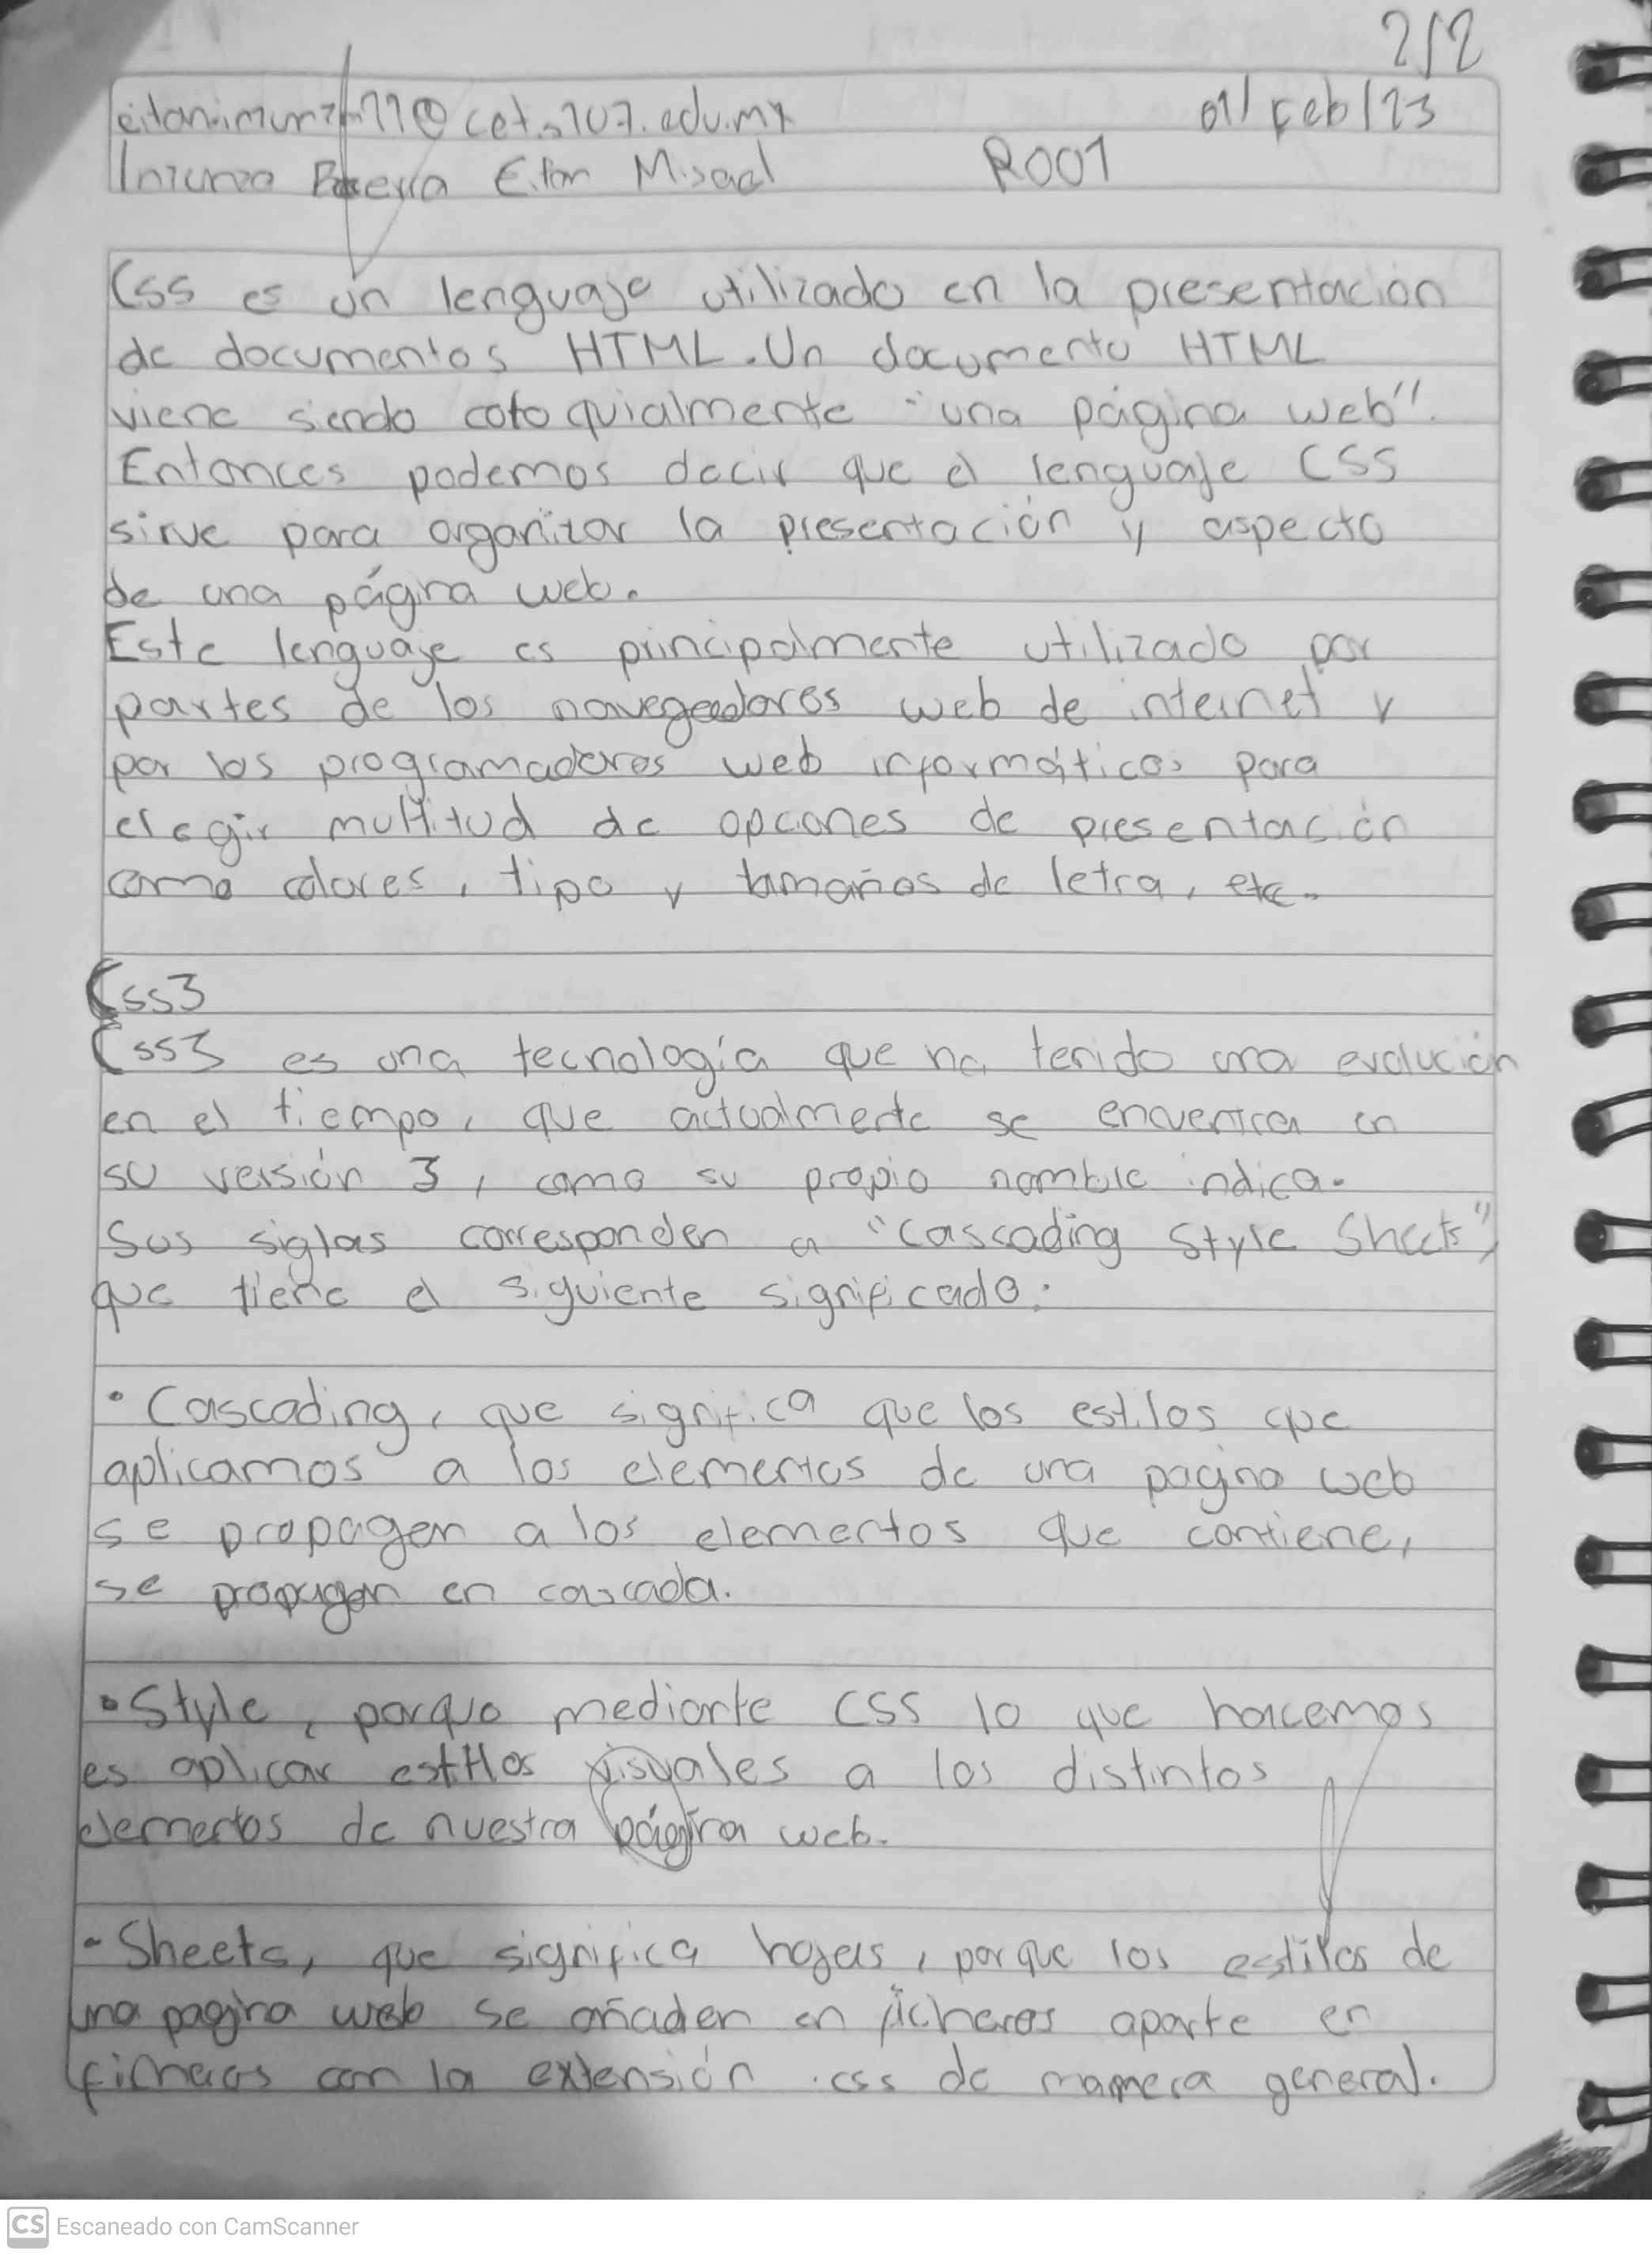 2/2
01/Feb/23
@cetis107.edu.mx
Eitan Misael R001
Css es un lenguaje utilizado en la presentación
de documentos HTML. Un documento HTML
viene siendo coloquialmente "una página web".
Entonces podemos decir que el lenguaje CSS
sirve para organizar la presentación y aspecto
de una página web.
Este lenguaje es principalmente utilizado por
partes de los navegadores web de internet y
por los programadores web informáticos para
elegir multitud de opciones de presentación
como colores, tipo y tamaños de letra, etc.
Css3
Css3 es una tecnología que ha tenido una evolución
en el tiempo, que actualmente se encuentra en
su versión 3, como su propio nombre indica.
Sus siglas corresponden a "Cascading Style Sheets",
que tiene el siguiente significado:
• Cascading, que significa que los estilos que
aplicamos a los elementos de una pagina web
se propagan a los elementos que contiene,
se propagan en cascada.
• Style, porque mediante CSS lo que hacemos
es aplicar estilos visuales a los distintos
elementos de nuestra página web.
- Sheets, que significa hojas, porque los estilos de
una pagina web se añaden en ficheros aparte en
ficheros con la extensión .css de manera general.
CS Escaneado con CamScanner